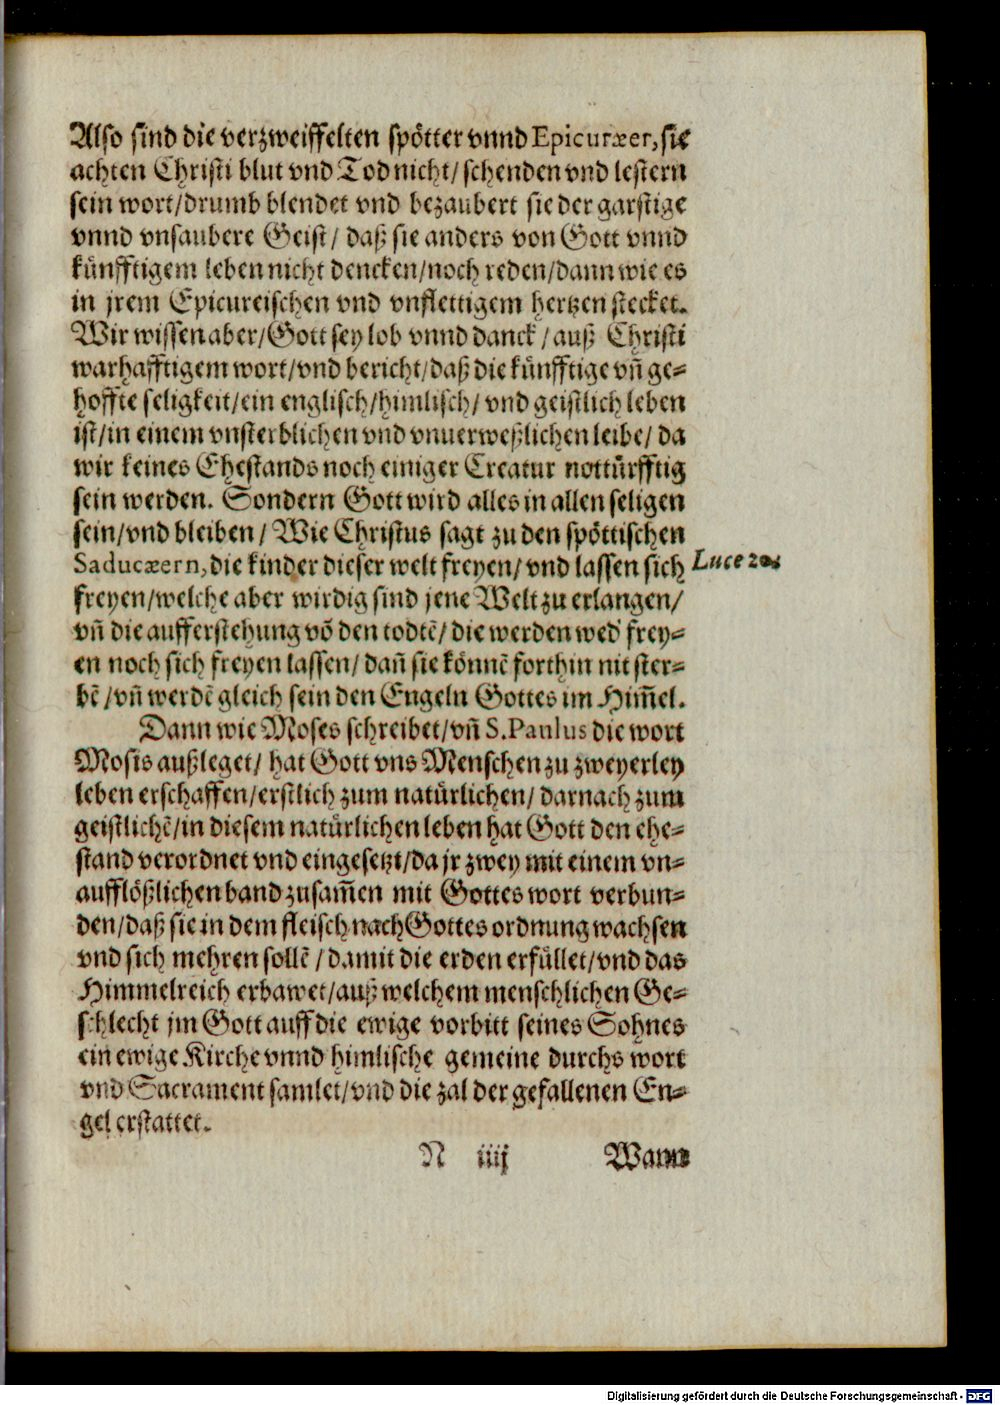 Also sind die verzweiffelten spötter vnnd Epicuræer, sie
achten Christi blut vnd Tod nicht/ schenden vnd lestern
sein wort/ drumb blendet vnd bezaubert sie der garstige
vnnd vnsaubere Geist/ daß sie anders von Gott vnnd
künfftigem leben nicht dencken/ noch reden/ dann wie es
in jrem Epicureischen vnd vnflettigem hertzen stecket.
Wir wissen aber/ Gott sey lob vnnd danck/ auß Christi
warhafftigem wort/ vnd bericht/ daß die künfftige vñ ge-
hoffte seligkeit/ ein englisch/ himlisch/ vnd geistlich leben
ist/ in einem vnsterblichen vnd vnuerweßlichen leibe/ da
wir keines Ehestands noch einiger Creatur nottürfftig
sein werden. Sondern Gott wird alles in allen seligen
sein/ vnd bleiben/ Wie Christus sagt zu den spöttischen
Saducæern, die kinder dieser welt freyen/ vnd lassen sich Luce 20.
freyen/ welche aber wirdig sind jene Welt zu erlangen/
vñ die aufferstehung võ den todtẽ/ die werden wed' frey-
en noch sich freyen lassen/ dañ sie könnẽ forthin nit ster-
bẽ/ vñ werdẽ gleich sein den Engeln Gottes im Him̃el.
Dann wie Moses schreibet/ vñ S. Paulus die wort
Mosis außleget/ hat Gott vns Menschen zu zweyerley
leben erschaffen/ erstlich zum natürlichen/ darnach zum
geistlichẽ/ in diesem natürlichen leben hat Gott den ehe-
stand verordnet vnd eingesetzt/ da jr zwey mit einem vn-
aufflößlichen band zusam̃en mit Gottes wort verbun-
den/ daß sie in dem fleisch nach Gottes ordnung wachsen
vnd sich mehren sollẽ/ damit die erden erfüllet/ vnd das
Himmelreich erbawet/ auß welchem menschlichen Ge-
schlecht jm Gott auff die ewige vorbitt seines Sohnes
ein ewige Kirche vnnd himlische gemeine durchs wort
vnd Sacrament samlet/ vnd die zal der gefallenen En-
gel erstattet.
N iiij Wann
Digitalisierung gefördert durch die Deutsche Forschungsgemeinschaft - DFG